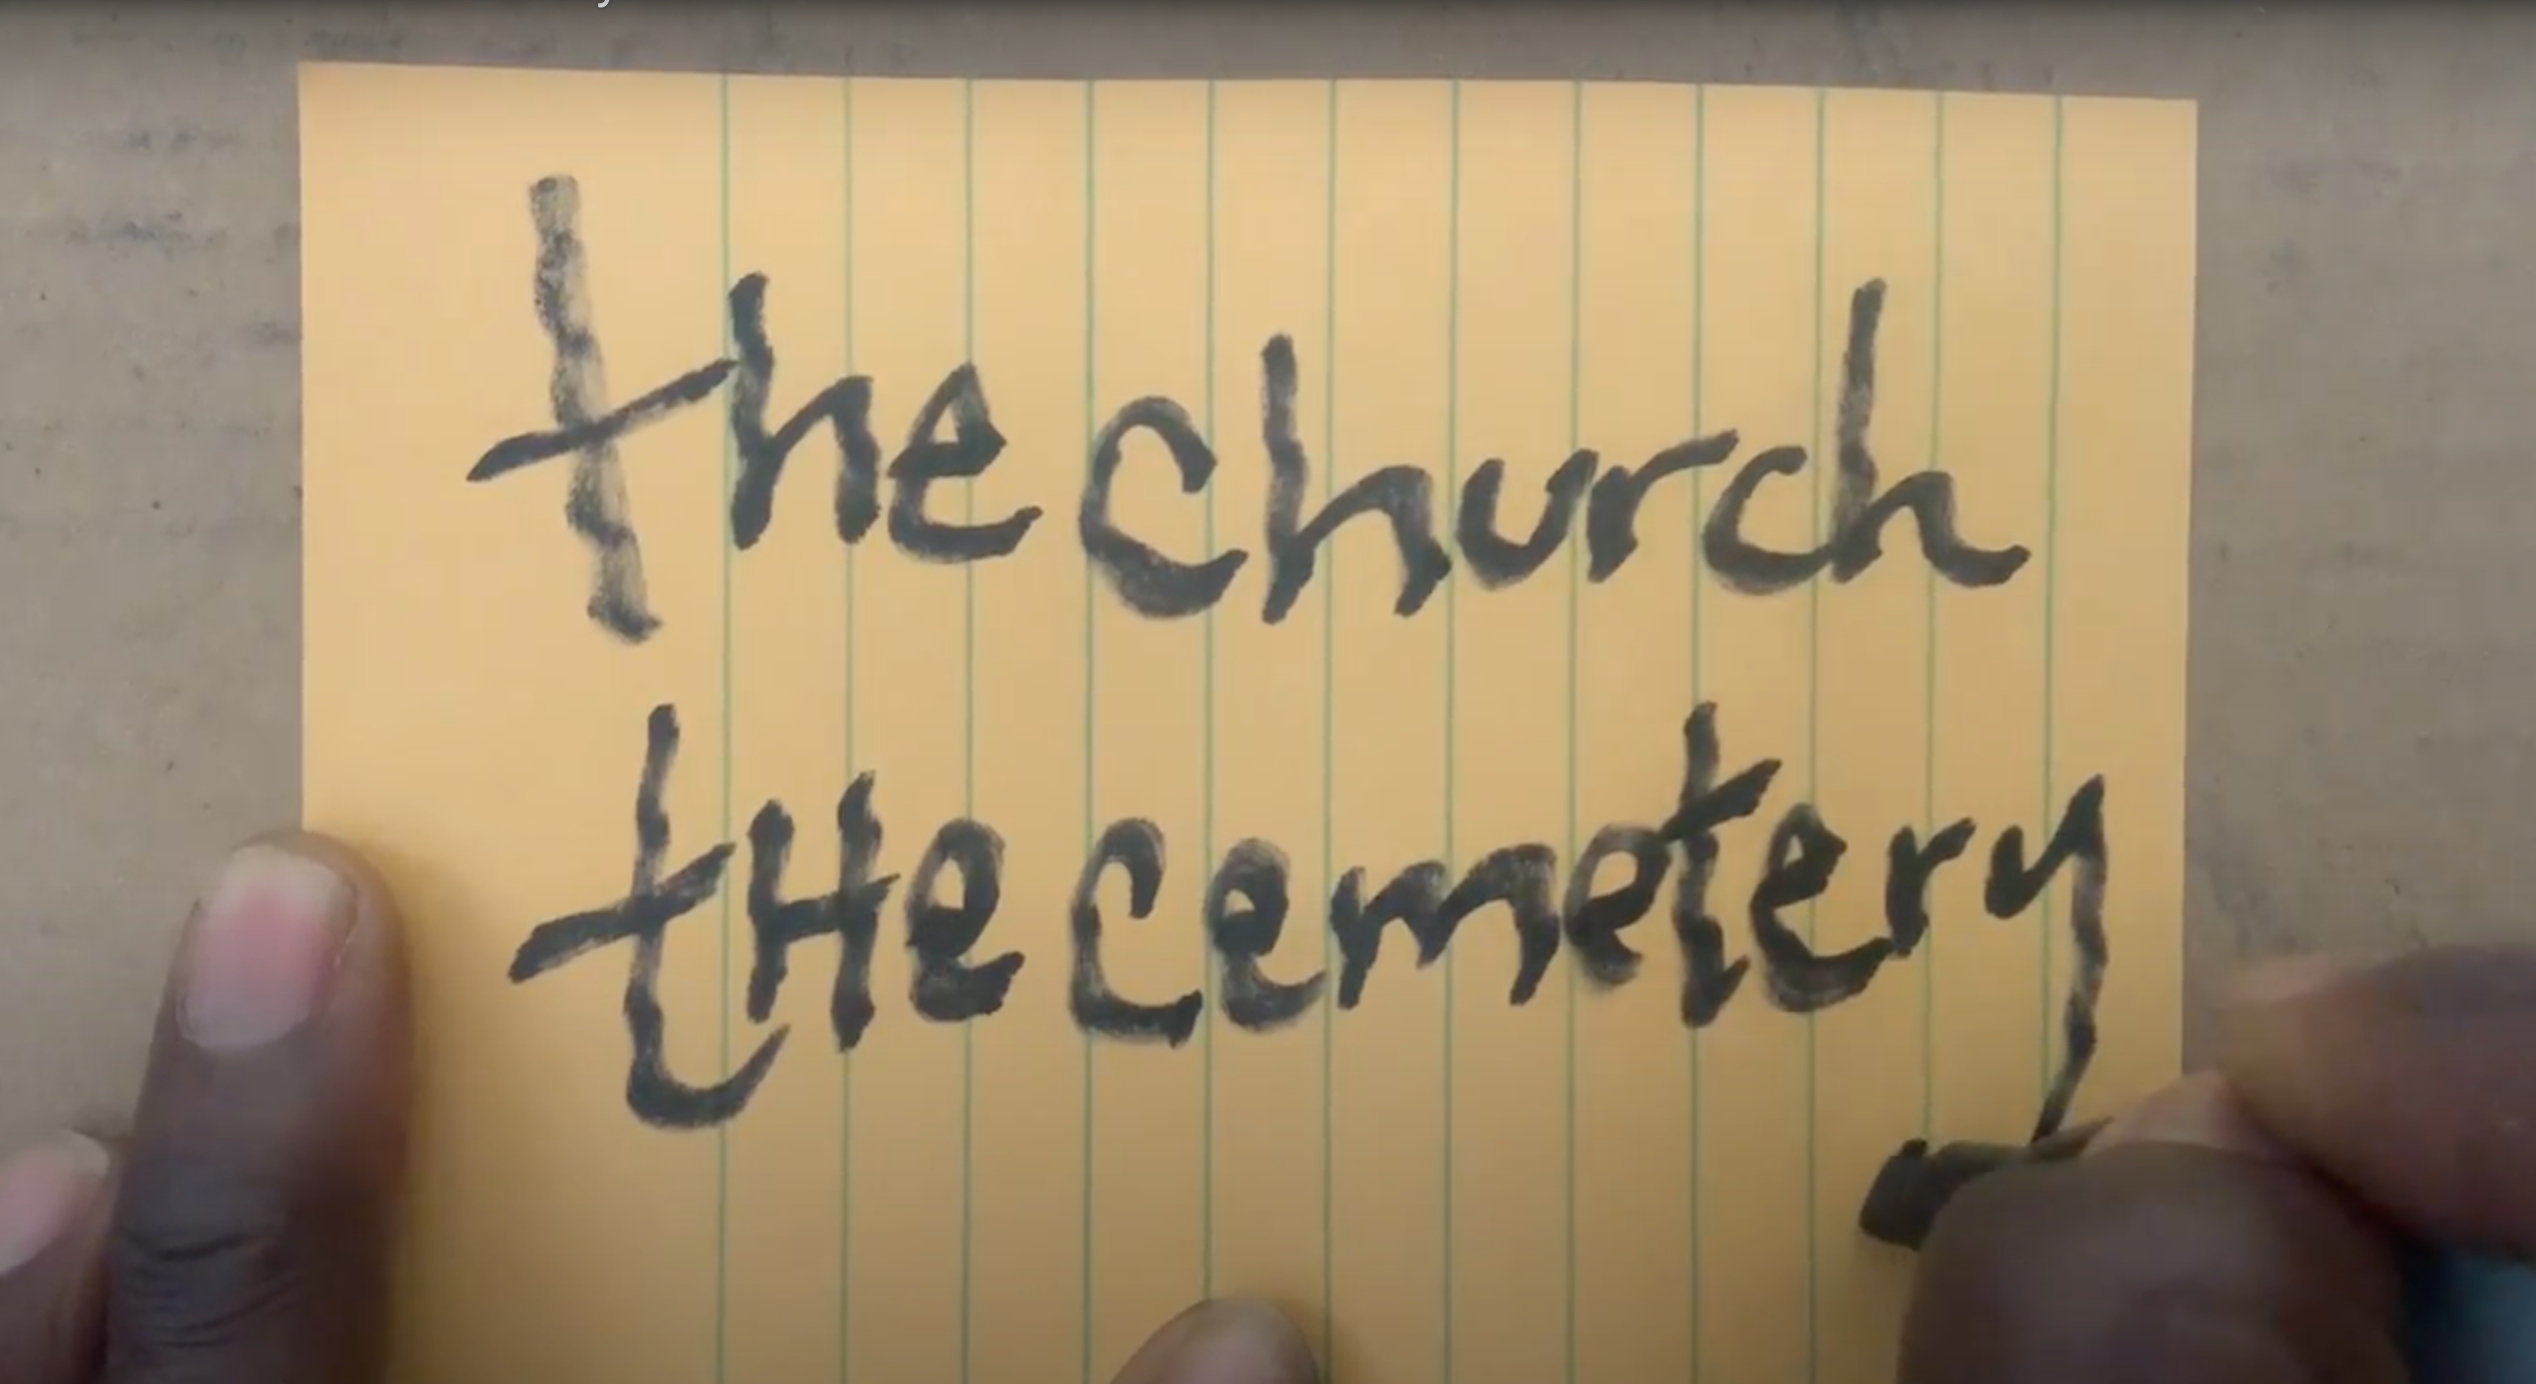 the church
tHe cemetery